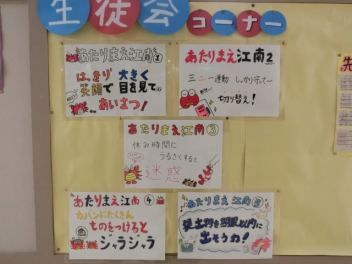 生徒会コーナー
あたりまえ江南①
はっきり 大きく
先頭で 目を見て
あいさつ!
あたりまえ江南2
三ニー運動 しっかり守って
切り替え!
あたりまえ江南③
休み時間に
うるさくすると
迷惑
あたりまえ江南④
カバンにたくさん
ものをつけると
ジャラジャラ
あたりまえ江南⑤
提出物を期限以内に
出そうか!